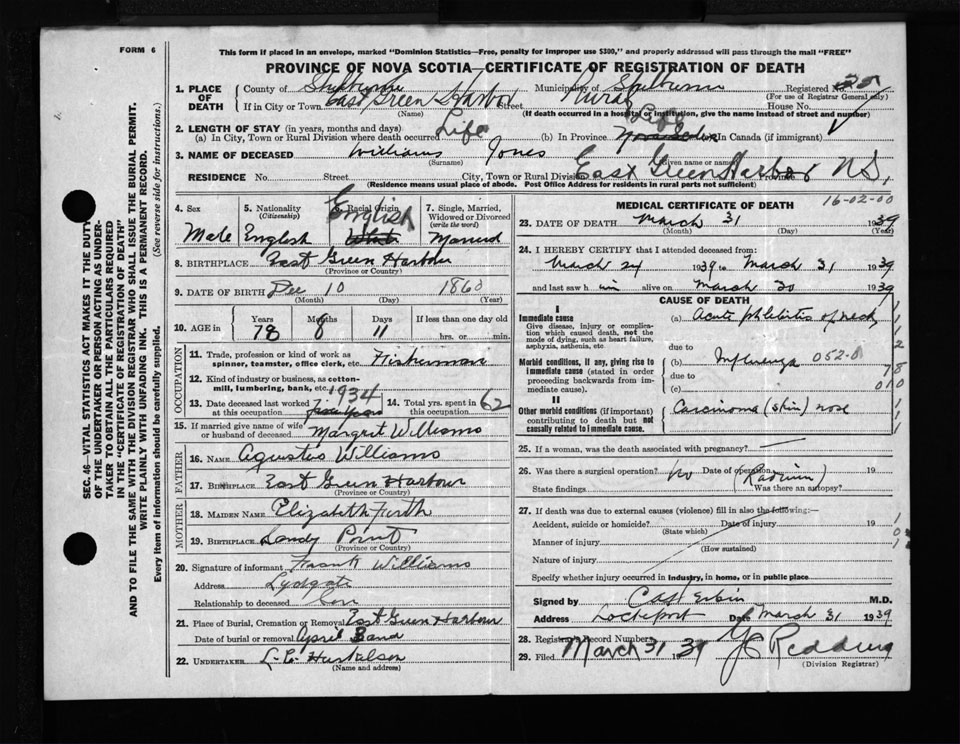 FORM 6
This form if placed in an envelope, marked "Dominion Statistics—Free, penalty for improper use $300," and properly addressed will pass through the mail "FREE"
PROVINCE OF NOVA SCOTIA—CERTIFICATE OF REGISTRATION OF DEATH
1. PLACE OF DEATH County of Shelburne Municipality of Shelburne Registered No.
(For use of Registrar General only)
If in City or Town East Green Harbor Street Rural House No.
(Name) (If death occurred in a hospital or institution, give the name instead of street and number)
2. LENGTH OF STAY (in years, months and days)
(a) In City, Town or Rural Division where death occurred Life (b) In Province Life In Canada (if immigrant)
3. NAME OF DECEASED Williams Jones
(Surname) (Given name or names)
RESIDENCE No. Street City, Town or Rural Division East Green Harbor N.S. Province
(Residence means usual place of abode. Post Office Address for residents in rural parts not sufficient)
4. Sex Male
5. Nationality (Citizenship) English
6. Racial Origin English
7. Single, Married, Widowed or Divorced (write the word) Married
8. BIRTHPLACE East Green Harbour
(Province or Country)
9. DATE OF BIRTH Dec 10 1860
(Month) (Day) (Year)
10. AGE in Years Months Days If less than one day old
78 11 hrs. or min.
OCCUPATION
11. Trade, profession or kind of work as spinner, teamster, office clerk, etc. Fisherman
12. Kind of industry or business, as cotton-mill, lumbering, bank, etc.
13. Date deceased last worked at this occupation 1934
14. Total yrs. spent in this occupation 62
15. If married give name of wife or husband of deceased Margret Williams
FATHER
16. NAME Agustus Williams
17. BIRTHPLACE East Green Harbour
(Province or Country)
MOTHER
18. MAIDEN NAME Elizabeth Firth
19. BIRTHPLACE Sandy Point
(Province or Country)
20. Signature of informant Frank Williams
Address Lydgate
Relationship to deceased Son
21. Place of Burial, Cremation or Removal East Green Harbour
Date of burial or removal April
22. UNDERTAKER L.C.
(Name and address)
MEDICAL CERTIFICATE OF DEATH
16-02-00
23. DATE OF DEATH March 31 1939
(Month) (Day) (Year)
24. I HEREBY CERTIFY that I attended deceased from:
March 24 1939 to March 31 1939
and last saw him alive on March 30 1939
CAUSE OF DEATH
Immediate cause
Give disease, injury or complication which caused death, not the mode of dying, such as heart failure, asphyxia, asthenia, etc
(a) Acute phlebitis of neck
due to
Morbid conditions, if any, giving rise to immediate cause (stated in order proceeding backwards from immediate cause).
(b) Influenza
due to
(c)
II
Other morbid conditions (if important) contributing to death but not causally related to immediate cause.
Carcinoma (skin) nose
25. If a woman, was the death associated with pregnancy?
26. Was there a surgical operation? No Date of operation 19
State findings (Radium) Was there an autopsy?
27. If death was due to external causes (violence) fill in also the following:—
Accident, suicide or homicide? Date of injury 19
(State which)
Manner of injury
(How sustained)
Nature of injury
Specify whether injury occurred in industry, in home, or in public place
Signed by M.D.
Address Lockeport Date March 31 1939
28. Registrar's Record Number
29. Filed March 31 1939 Redding
(Division Registrar)
SEC. 46—VITAL STATISTICS ACT MAKES IT THE DUTY
OF THE UNDERTAKER OR PERSON ACTING AS UNDER-
TAKER TO OBTAIN ALL THE PARTICULARS REQUIRED
IN THE "CERTIFICATE OF REGISTRATION OF DEATH"
AND TO FILE THE SAME WITH THE DIVISION REGISTRAR WHO SHALL ISSUE THE BURIAL PERMIT.
WRITE PLAINLY WITH UNFADING INK. THIS IS A PERMANENT RECORD.
Every item of information should be carefully supplied. (See reverse side for instructions.)